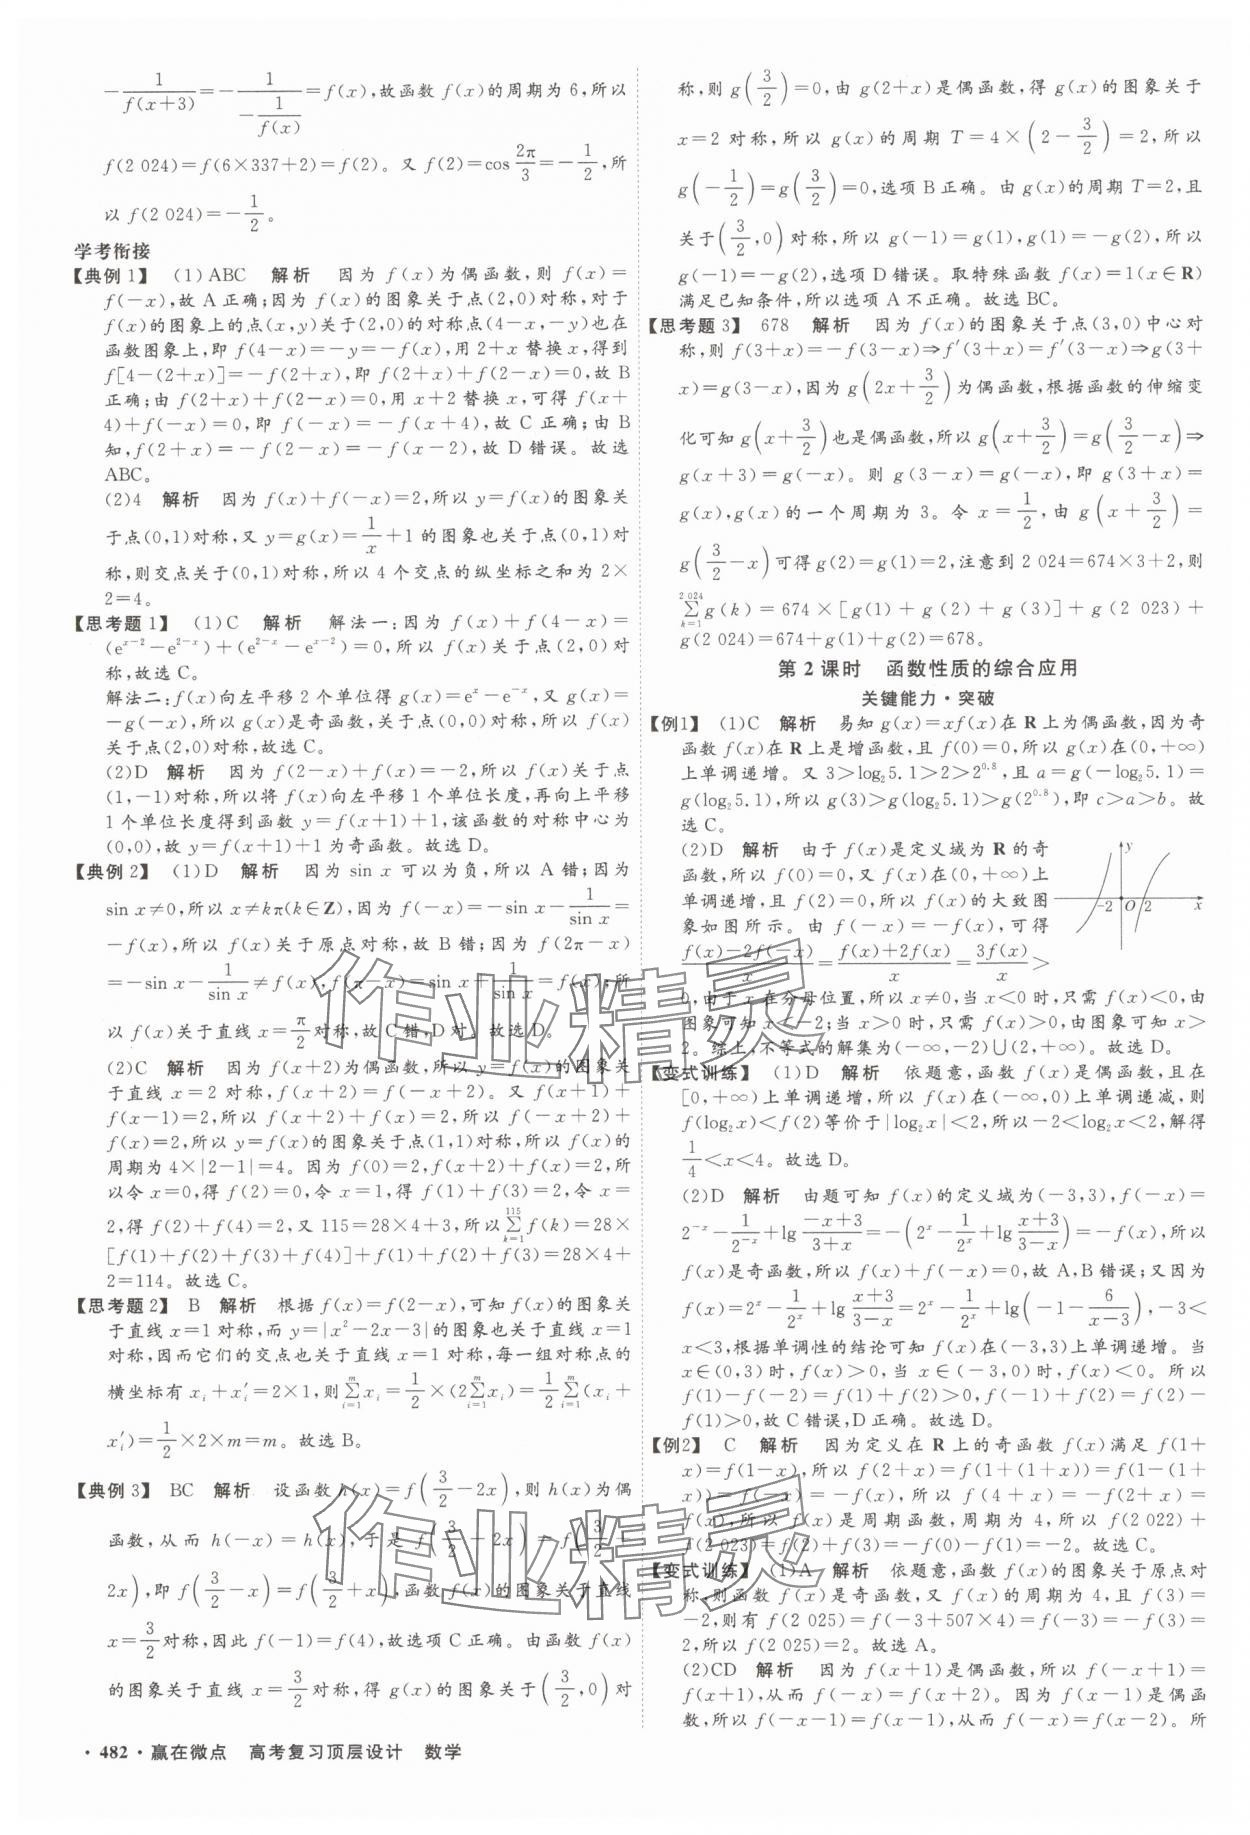 −1/f(x+3)=−1/(−1/f(x))=f(x),故函数 f(x)的周期为 6,所以
f(2 024)=f(6×337+2)=f(2)。又 f(2)=cos 2π/3=−1/2,所
以 f(2 024)=−1/2。
学考衔接
【典例 1】 (1)ABC 解析 因为 f(x)为偶函数,则 f(x)=
f(−x),故 A 正确;因为 f(x)的图象关于点(2,0)对称,对于
f(x)的图象上的点(x,y)关于(2,0)的对称点(4−x,−y)也在
函数图象上,即 f(4−x)=−y=−f(x),用 2+x 替换 x,得到
f[4−(2+x)]=−f(2+x),即 f(2+x)+f(2−x)=0,故 B
正确;由 f(2+x)+f(2−x)=0,用 x+2 替换 x,可得 f(x+
4)+f(−x)=0,即 f(−x)=−f(x+4),故 C 正确;由 B
知,f(2+x)=−f(2−x)=−f(x−2),故 D 错误。故选
ABC。
(2)4 解析 因为 f(x)+f(−x)=2,所以 y=f(x)的图象关
于点(0,1)对称,又 y=g(x)=1/x+1 的图象也关于点(0,1)对
称,则交点关于(0,1)对称,所以 4 个交点的纵坐标之和为 2×
2=4。
【思考题 1】 (1)C 解析 解法一:因为 f(x)+f(4−x)=
(e^(x−2)−e^(2−x))+(e^(2−x)−e^(x−2))=0,所以 f(x)关于点(2,0)对
称,故选 C。
解法二:f(x)向左平移 2 个单位得 g(x)=e^x−e^(−x),又 g(x)=
−g(−x),所以 g(x)是奇函数,关于点(0,0)对称,所以 f(x)
关于点(2,0)对称,故选 C。
(2)D 解析 因为 f(2−x)+f(x)=−2,所以 f(x)关于点
(1,−1)对称,所以将 f(x)向左平移 1 个单位长度,再向上平移
1 个单位长度得到函数 y=f(x+1)+1,该函数的对称中心为
(0,0),故 y=f(x+1)+1 为奇函数。故选 D。
【典例 2】 (1)D 解析 因为 sin x 可以为负,所以 A 错;因为
sin x≠0,所以 x≠kπ(k∈Z),因为 f(−x)=−sin x−1/sin x=
−f(x),所以 f(x)关于原点对称,故 B 错;因为 f(2π−x)
=−sin x−1/sin x≠f(x),f(π−x)=sin x+1/sin x=f(x),所
以 f(x)关于直线 x=π/2对称,故 C 错,D 对。故选 D。
(2)C 解析 因为 f(x+2)为偶函数,所以 f(x)的图象关
于直线 x=2 对称,f(x+2)=f(−x+2)。又 f(x+1)+
f(x−1)=2,所以 f(x+2)+f(x)=2,所以 f(−x+2)+
f(x)=2,所以 y=f(x)的图象关于点(1,1)对称,所以 f(x)的
周期为 4×|2−1|=4。因为 f(0)=2,f(x+2)+f(x)=2,所
以令 x=0,得 f(2)=0,令 x=1,得 f(1)+f(3)=2,令 x=
2,得 f(2)+f(4)=2,又 115=28×4+3,所以∑_{k=1}^{115}f(k)=28×
[f(1)+f(2)+f(3)+f(4)]+f(1)+f(2)+f(3)=28×4+
2=114。故选 C。
【思考题 2】 B 解析 根据 f(x)=f(2−x),可知 f(x)的图象关
于直线 x=1 对称,而 y=|x²−2x−3|的图象也关于直线 x=1
对称,因而它们的交点也关于直线 x=1 对称,每一组对称点的
横坐标有 x_i+x_i′=2×1,则∑_{i=1}^{m}x_i=1/2×(2∑_{i=1}^{m}x_i)=1/2∑_{i=1}^{m}(x_i+
x_i′)=1/2×2×m=m。故选 B。
【典例 3】 BC 解析 设函数 h(x)=f(3/2−2x),则 h(x)为偶
函数,从而 h(−x)=h(x),于是 f(3/2+2x)=f(3/2−
2x),即 f(3/2−x)=f(3/2+x),函数 f(x)的图象关于直线
x=3/2对称,因此 f(−1)=f(4),故选项 C 正确。由函数 f(x)
的图象关于直线 x=3/2对称,得 g(x)的图象关于(3/2,0)对
称,则 g(3/2)=0,由 g(2+x)是偶函数,得 g(x)的图象关于
x=2 对称,所以 g(x)的周期 T=4×(2−3/2)=2,所以
g(−1/2)=g(3/2)=0,选项 B 正确。由 g(x)的周期 T=2,且
关于(3/2,0)对称,所以 g(−1)=g(1),g(1)=−g(2),所以
g(−1)=−g(2),选项 D 错误。取特殊函数 f(x)=1(x∈R)
满足已知条件,所以选项 A 不正确。故选 BC。
【思考题 3】 678 解析 因为 f(x)的图象关于点(3,0)中心对
称,则 f(3+x)=−f(3−x)⇒f′(3+x)=f′(3−x)⇒g(3+
x)=g(3−x),因为 g(2x+3/2)为偶函数,根据函数的伸缩变
化可知 g(x+3/2)也是偶函数,所以 g(x+3/2)=g(3/2−x)⇒
g(x+3)=g(−x)。则 g(3−x)=g(−x),即 g(3+x)=
g(x),g(x)的一个周期为 3。令 x=1/2,由 g(x+3/2)=
g(3/2−x)可得 g(2)=g(1)=2,注意到 2 024=674×3+2,则
∑_{k=1}^{2 024}g(k)=674×[g(1)+g(2)+g(3)]+g(2 023)+
g(2 024)=674+g(1)+g(2)=678。
第 2 课时 函数性质的综合应用
关键能力·突破
【例1】 (1)C 解析 易知 g(x)=xf(x)在 R 上为偶函数,因为奇
函数 f(x)在 R 上是增函数,且 f(0)=0,所以 g(x)在(0,+∞)
上单调递增。又 3>log₂5.1>2>2^0.8,且 a=g(−log₂5.1)=
g(log₂5.1),所以 g(3)>g(log₂5.1)>g(2^0.8),即 c>a>b。故
选 C。
(2)D 解析 由于 f(x)是定义域为 R 的奇
函数,所以 f(0)=0,又 f(x)在(0,+∞)上
单调递增,且 f(2)=0,所以 f(x)的大致图
象如图所示。由 f(−x)=−f(x),可得
(f(x)−2f(−x))/x=(f(x)+2f(x))/x=3f(x)/x>
0,由于 x 在分母位置,所以 x≠0,当 x<0 时,只需 f(x)<0,由
图象可知 x<−2;当 x>0 时,只需 f(x)>0,由图象可知 x>
2。综上,不等式的解集为(−∞,−2)∪(2,+∞)。故选 D。
y
−2 O 2 x
【变式训练】 (1)D 解析 依题意,函数 f(x)是偶函数,且在
[0,+∞)上单调递增,所以 f(x)在(−∞,0)上单调递减,则
f(log₂x)<f(2)等价于|log₂x|<2,所以−2<log₂x<2,解得
1/4<x<4。故选 D。
(2)D 解析 由题可知 f(x)的定义域为(−3,3),f(−x)=
2^(−x)−1/2^(−x)+lg (−x+3)/(3+x)=−(2^x−1/2^x+lg (x+3)/(3−x)),所以
f(x)是奇函数,所以 f(x)+f(−x)=0,故 A,B 错误;又因为
f(x)=2^x−1/2^x+lg (x+3)/(3−x)=2^x−1/2^x+lg(−1−6/(x−3)),−3<
<3,根据单调性的结论可知 f(x)在(−3,3)上单调递增。当
x∈(0,3)时,f(x)>0,当 x∈(−3,0)时,f(x)<0。所以
f(1)−f(−2)=f(1)+f(2)>0,f(−1)+f(2)=f(2)−
f(1)>0,故 C 错误,D 正确。故选 D。
【例2】 C 解析 因为定义在 R 上的奇函数 f(x)满足 f(1+
x)=f(1−x),所以 f(2+x)=f(1+(1+x))=f(1−(1+
x))=f(−x)=−f(x),所以 f(4+x)=−f(2+x)=
f(x),所以 f(x)是周期函数,周期为 4,所以 f(2 022)+
f(2 023)=f(2)+f(3)=−f(0)−f(1)=−2。故选 C。
【变式训练】 (1)A 解析 依题意,函数 f(x)的图象关于原点对
称,则函数 f(x)是奇函数,又 f(x)的周期为 4,且 f(3)=
−2,则有 f(2 025)=f(−3+507×4)=f(−3)=−f(3)=
2,所以 f(2 025)=2。故选 A。
(2)CD 解析 因为 f(x+1)是偶函数,所以 f(−x+1)=
f(x+1),从而 f(−x)=f(x+2)。因为 f(x−1)是偶函
数,所以 f(−x−1)=f(x−1),从而 f(−x)=f(x−2)。所
·482·赢在微点 高考复习顶层设计 数学
作业精灵
作业精灵